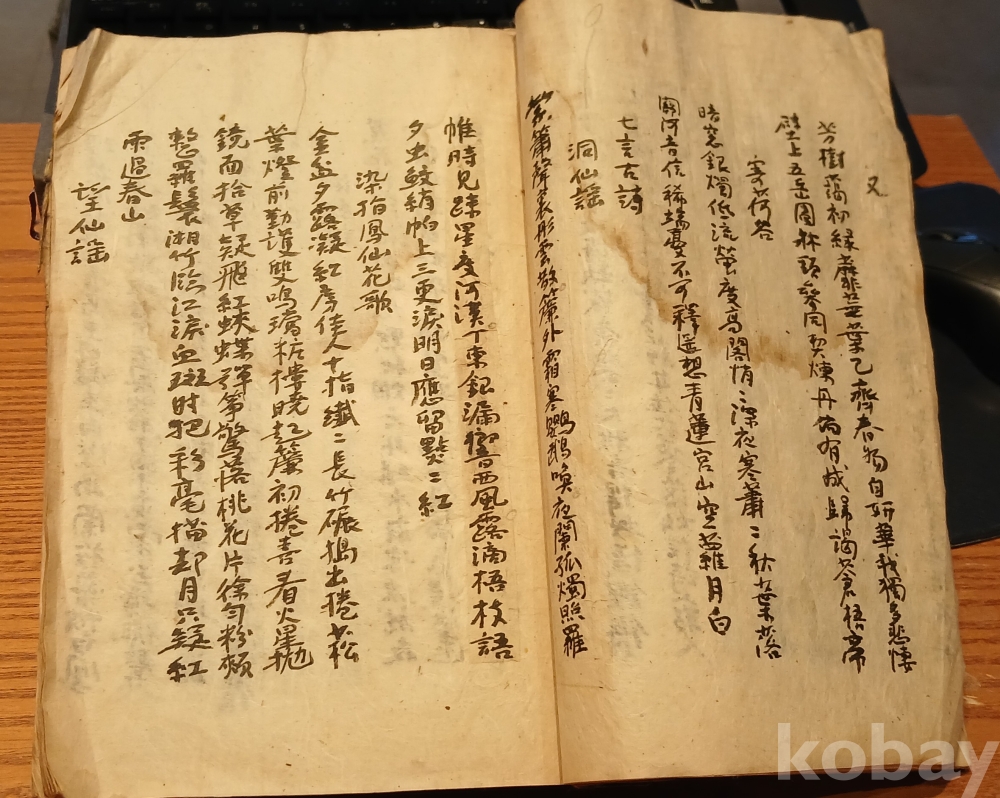 又
芳樹藹初綠蘼蕪葉已齊春物自妍華我獨多悲悽
壁上五岳圖牀頭參同契煉丹倘有成歸謁蒼梧帝
寄荷谷
暗窓銀燭低流螢度高閣悄〻深夜寒蕭〻秋葉落
關河音信稀端憂不可釋遥想青蓮宮山空蘿月白
七言古詩
洞仙謠
紫簫聲裏彤雲散簾外霜寒鸚鵡喚夜闌孤燭照羅
帷時見踈星度河漢丁東銀漏響西風露滴梧枝語
夕虫鮫綃帕上三更淚明日應留點〻紅
染指鳳仙花歌
金盆夕露凝紅房佳人十指纖〻長竹碾搗出捲菘
葉燈前勤護雙鳴璫粧樓曉起簾初捲喜看火星抛
鏡面拾草疑飛紅蛺蝶彈箏驚落桃花片徐勻粉頰
整羅鬟湘竹臨江淚血斑时把彩毫描却月只疑紅
雨過春山
望仙謠
kobay